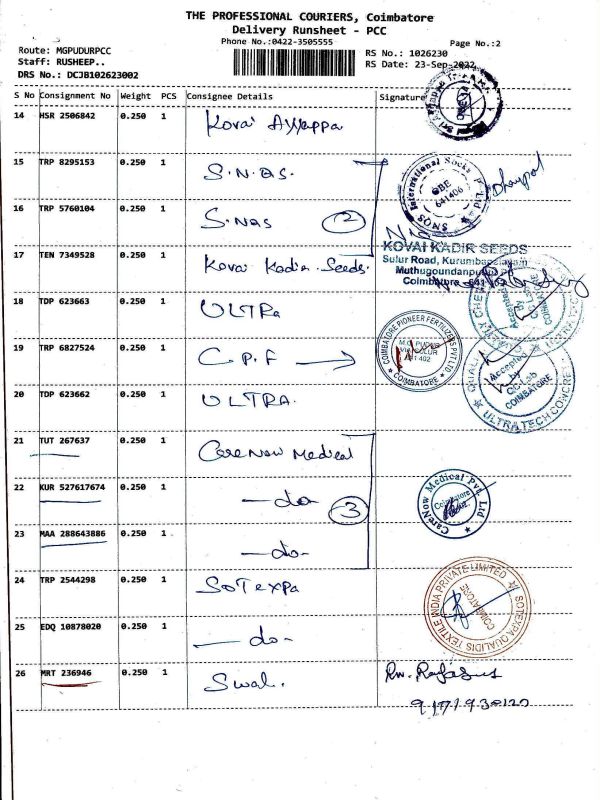 THE PROFESSIONAL COURIERS, Coimbatore
Delivery Runsheet - PCC
Phone No.:0422-3505555
Page No.:2
Route: MGPUDURPCC
RS No.: 1026230
Staff: RUSHEEP..
RS Date: 23-Sep-2022
DRS No.: DCJB102623002
S No Consignment No Weight PCS Consignee Details Signature
14 HSR 2506842 0.250 1 Kovai Ayyappa
15 TRP 8295153 0.250 1 S.N.QS.
16 TRP 5760104 0.250 1 S.NQS 2
SNQS International Socks P Ltd
OBE
641406
Dhanpal
17 TEN 7349528 0.250 1 Kovai Kadir Seeds.
KOVAI KADIR SEEDS
Sulur Road, Kurumbapalayam
Muthugoundanpudur
Coimbatore
18 TDP 623663 0.250 1 ULTRa
Accepted
By
COIMBATORE
19 TRP 6827524 0.250 1 C.P.F
COIMBATORE PIONEER FERTILIZERS PVT LTD
COIMBATORE
20 TDP 623662 0.250 1 ULTRA.
Accepted
by
QC Lab
COIMBATORE
ULTRA TECH CONCRETE
21 TUT 267637 0.250 1 CareNow Medical
22 KUR 527617674 0.250 1 -do 3
CareNow Medical Pvt. Ltd
Coimbatore
23 MAA 288643886 0.250 1 -do-
24 TRP 2544298 0.250 1 SOTEXPA
SOTEXPA QUALIDIS TEXTILE INDIA PRIVATE LIMITED
COIMBATORE
25 EDQ 10878020 0.250 1 -do-
26 MRT 236946 0.250 1 Swal.